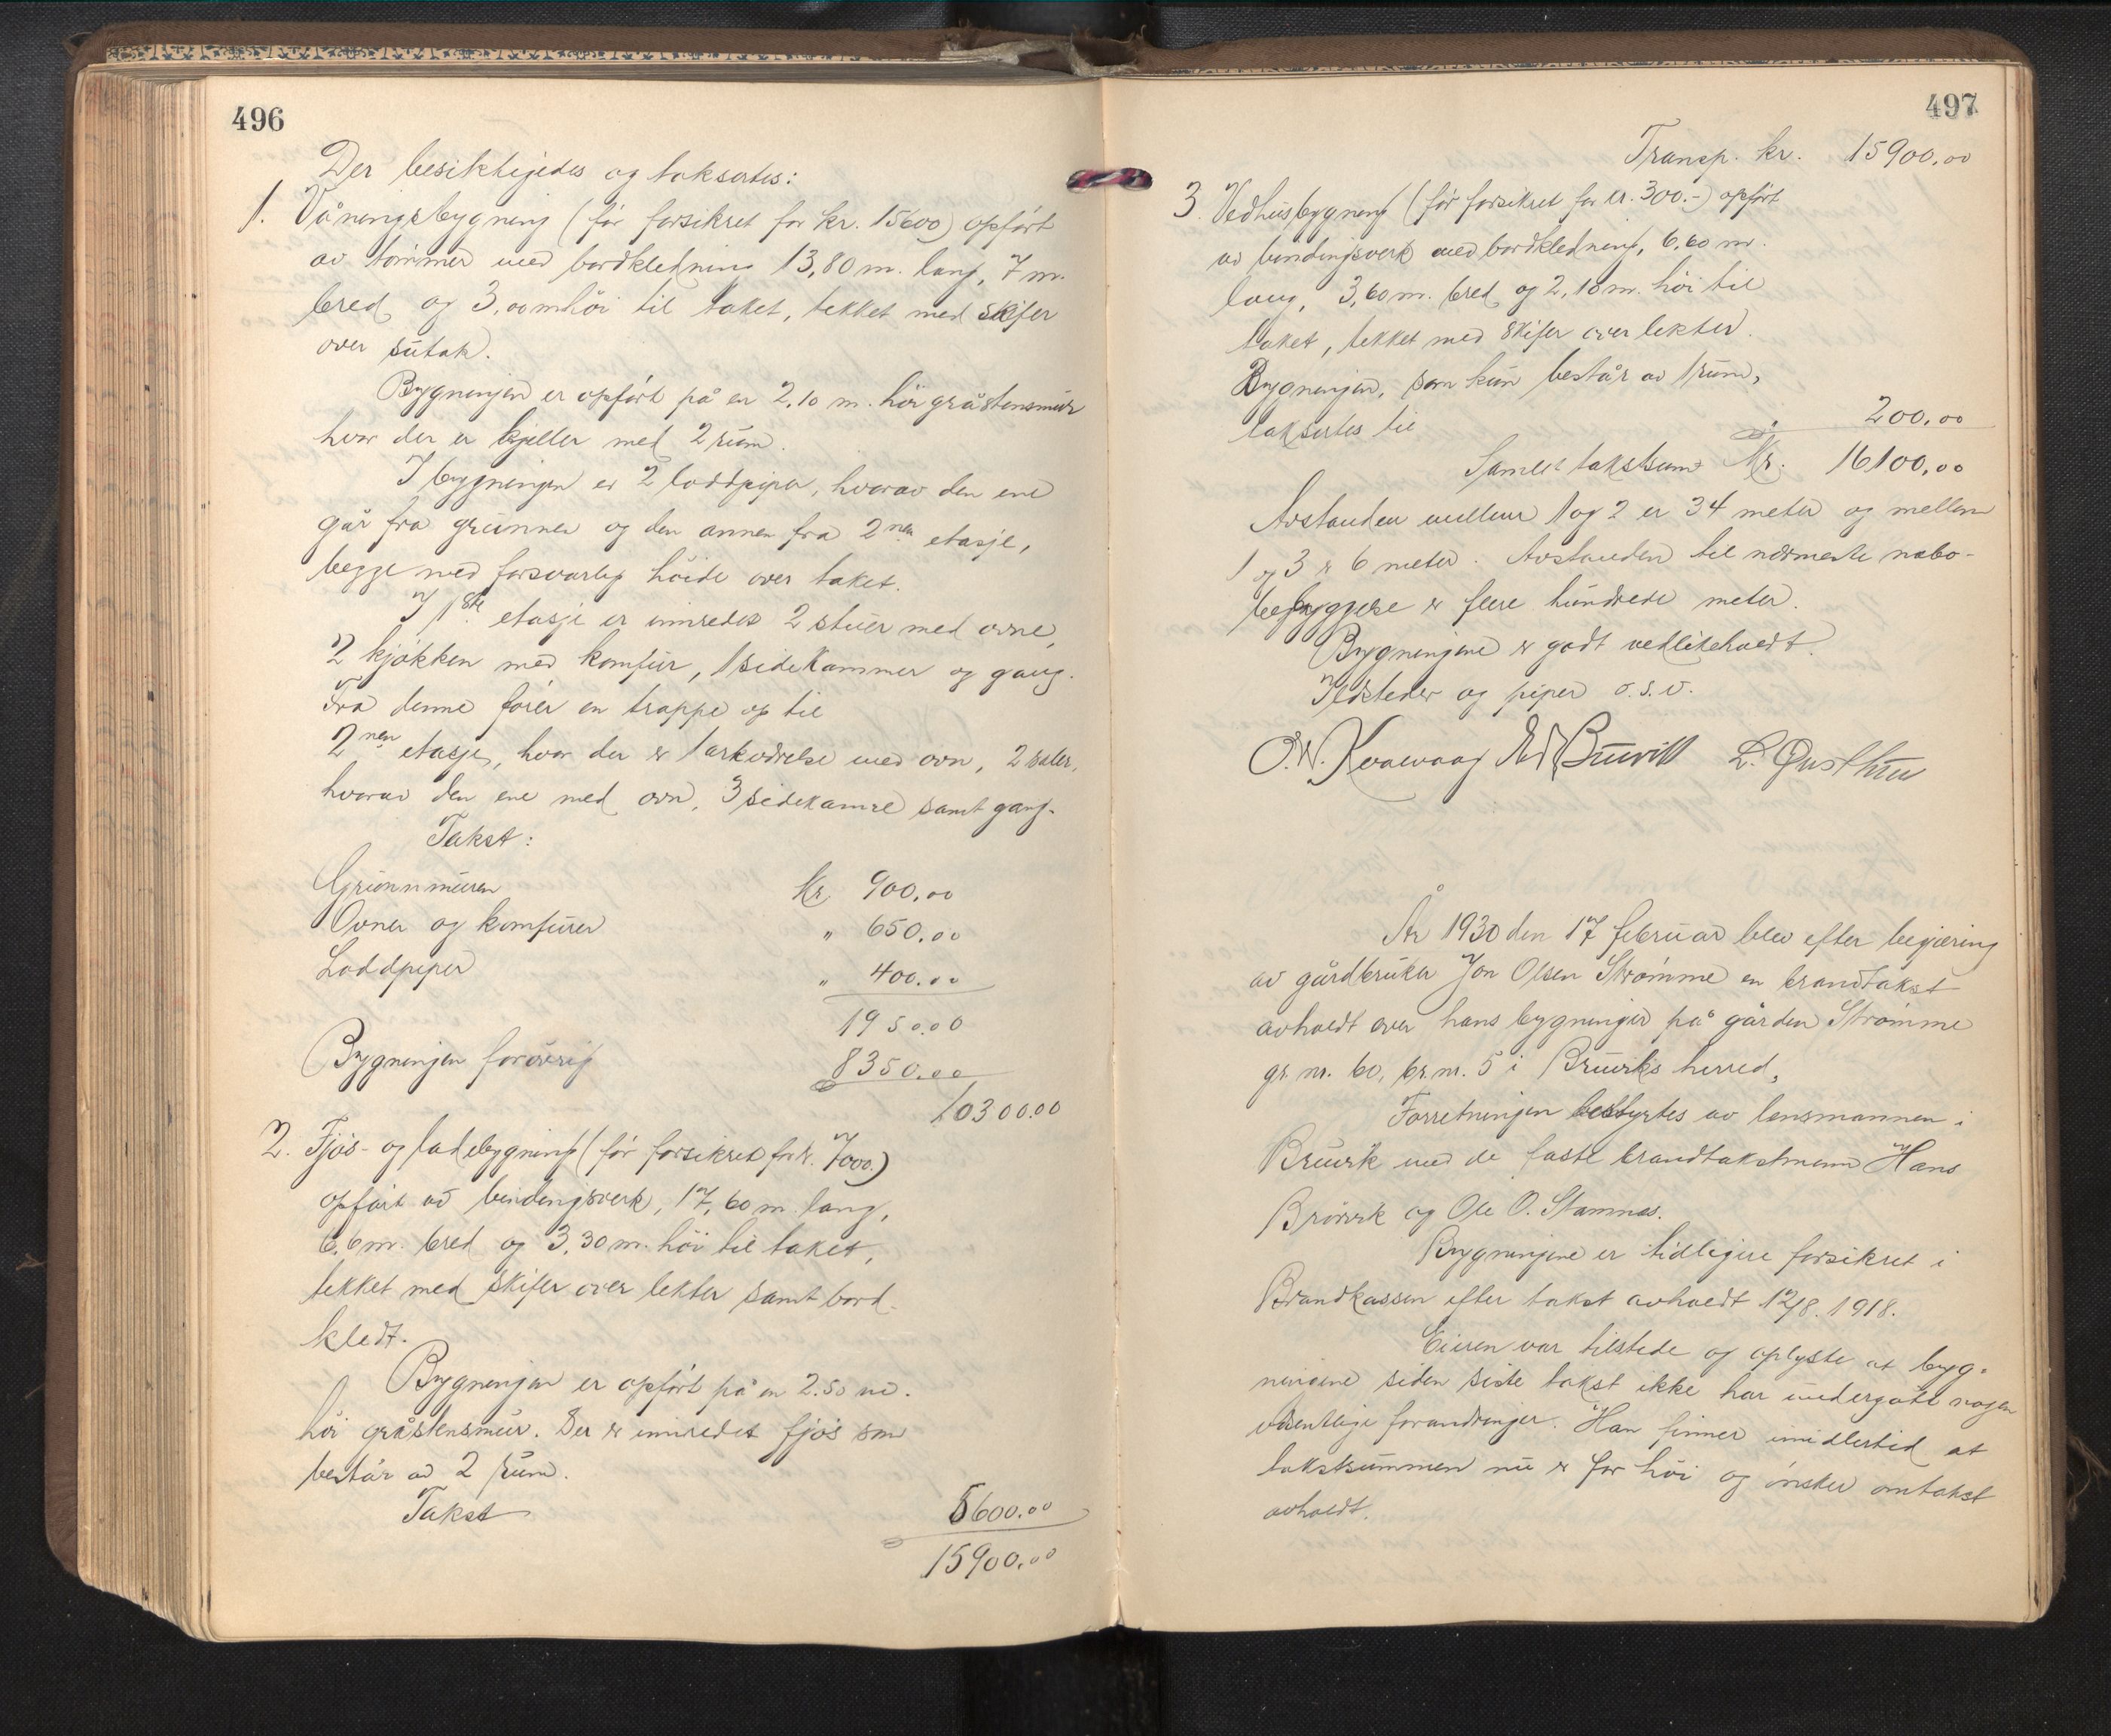 496
Der besiktigedes og taksertes:
1. Våningsbygning (før forsikret for kr. 15600) opført
av tømmer med bordkledning 13,80 m. lang, 7 m.
bred og 3,00 m høi til taket, tekket med skifer
over sutak.
Bygningen er opført på en 2,10 m. høi gråstensmur
hvor der er kjeller med 2 rum.
I bygningen er 2 loddpiper, hvorav den ene
går fra grunnen og den annen fra 2nen etasje,
begge med forsvarlig høide over taket.
I 1ste etasje er innredet 2 stuer med ovne,
2 kjøkken med komfur, 1 sidekammer og gang.
Fra denne fører en trappe op til
2nen etasje, hvor der er 1 arkværelse med ovn, 2 saler,
hvorav den ene med ovn, 3 sidekamre samt gang.
Takst:
Grunnmuren kr 900,00
Ovner og komfurer " 650,00
Loddpiper " 400,00
1950,00
Bygningen forøvrig 8350,00
10300,00
2. Fjøs- og ladebygning (før forsikret for kr. 7000.)
opført av bindingsverk, 17,60 m. lang,
6,6 m. bred og 3,30 m. høi til taket,
tekket med skifer over lekter samt bord-
kledt.
Bygningen er opført på en 2.50 m.
høi gråstensmur. Der er innredet fjøs som
består av 2 rum.
Takst 5600,00
15900,00
497
Transp. kr. 15900,00
3. Vedhusbygning (før forsikret for kr. 300.-) opført
av bindingsverk med bordkledning, 6,60 m.
lang, 3,60 m. bred og 2,10 m. høi til
taket, tekket med skifer over lekter.
Bygningen, som kun består av 1 rum,
taksertes til 200,00
Samlet takstsum Kr. 16100,00
Avstanden mellem 1 og 2 er 34 meter og mellem
1 og 3 er 6 meter. Avstanden til nærmeste nabo-
bebyggelse er flere hundrede meter.
Bygningene er godt vedlikeholdt.
Ildsteder og piper o.s.v.
O. W. Kvalvaag
År 1930 den 17 februar blev efter begjæring
av gårdbruker Jon Olsen Strømme en brandtakst
avholdt over hans bygninger på gården Strømme
gr. nr. 60, br. nr. 5 i Bruviks herred,
Forretningen bestyrtes av lensmannen i
Bruvik med de faste brandtakstmenn Hans
Brørvik og Ole O. Stamnes.
Bygningene er tidligere forsikret i
Brandkassen efter takst avholdt 12/8. 1918.
Eieren var tilstede og oplyste at byg-
ningene siden siste takst ikke har undergått nogen
vesentlige forandringer. Han finner imidlertid at
takstsummen nu er for høi og ønsker omtakst
avholdt.